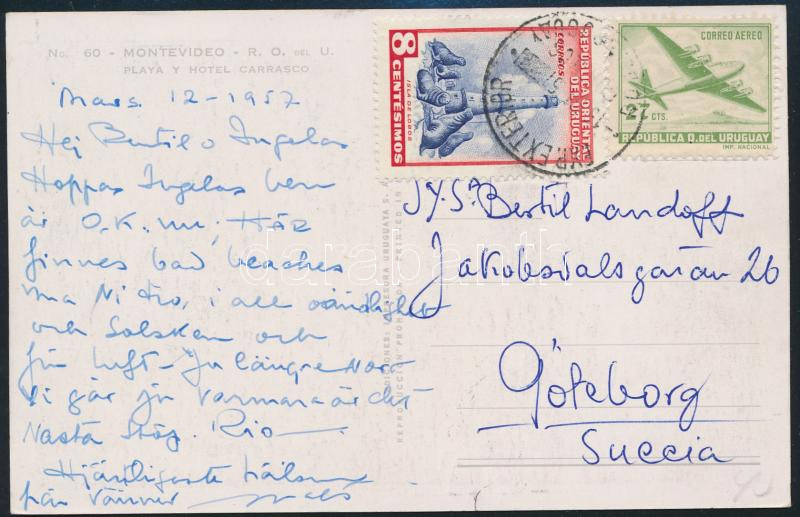 No. 60 - MONTEVIDEO - R. O. DEL U.
PLAYA Y HOTEL CARRASCO
Mars. 12-1957
Hej Bertil o Ingelas
Hoppas Ingelas ben
är O.K. nu, Här
finnes bad beaches
i all oändlighet
och Solsken och
fin luft - Ju längre Norr
vi går ju varmare är det
Nästa Stop. Rio
Hjärtligaste hälsn
från vänner
8
CENTÉSIMOS
ISLA DE LOBOS
CORREOS
REPUBLICA ORIENTAL
DEL URUGUAY
EXTERIOR
CORREO AEREO
27
CTS.
REPÚBLICA O. DEL URUGUAY
IMP. NACIONAL
IMPRESORA URUGUAYA S. A.
PRINTED IN
Bertil Landoff
Jakobsdalsgatan 26
Göteborg
Succia
darabanth